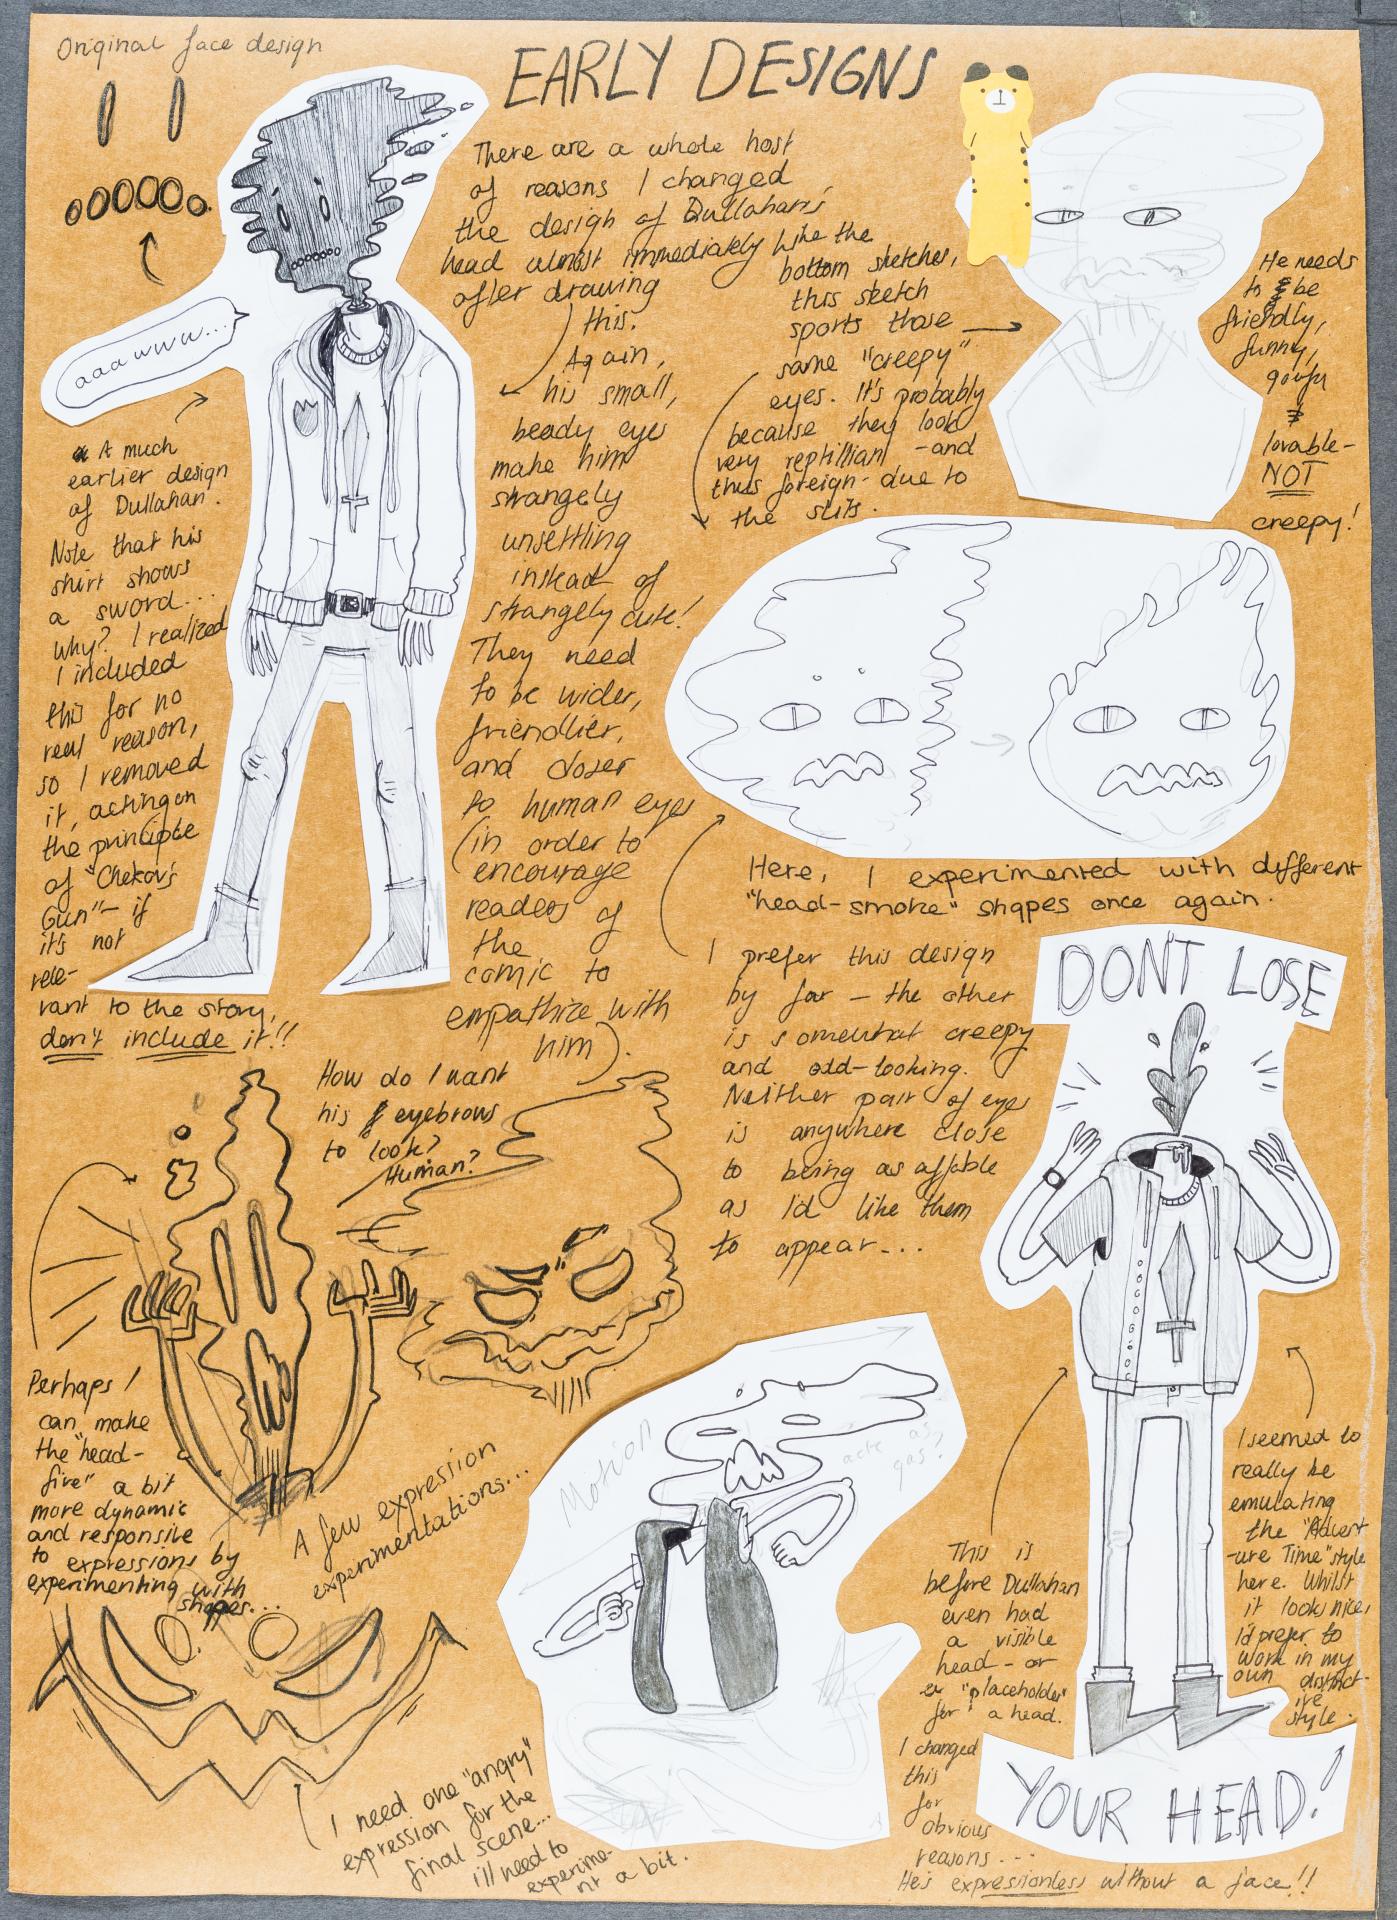 Original face design
EARLY DESIGNS
There are a whole host
of reasons I changed
the design of Dullahan's
head almost immediately
after drawing
this.
Again,
his small,
beady eyes
make him
strangely
unsettling
instead of
strangely cute!
They need
to be wider,
friendlier,
and closer
to human eyes
(in order to
encourage
readers of
the
comic to
empathize with
him).
Like the
bottom sketches,
this sketch
sports those
same "creepy"
eyes. It's probably
because they look
very reptillian - and
thus foreign - due to
the slits.
He needs
to be
friendly,
funny,
goofy
&
lovable-
NOT
creepy!
aaawww...
A much
earlier design
of Dullahan.
Note that his
shirt shows
a sword...
Why? I realized
I included
this for no
real reason,
so I removed
it, acting on
the principle
of "Chekov's
Gun" - if
it's not
rele-
vant to the story,
don't include it!!
Here, I experimented with different
"head-smoke" shapes once again.
I prefer this design
by far - the other
is somewhat creepy
and odd-looking.
Neither pair of eyes
is anywhere close
to being as affable
as I'd like them
to appear...
How do I want
his eyebrows
to look?
Human?
Perhaps I
can make
the "head-
fire" a bit
more dynamic
and responsive
to expressions by
experimenting with
shapes...
A few expression
experimentations...
I need one "angry"
expression for the
final scene...
i'll need to
experime-
nt a bit.
Motion
acts as
gas?
DON'T LOSE
YOUR HEAD!
This is
before Dullahan
even had
a visible
head - or
"placeholder"
for a head.
I changed
this
for
obvious
reasons...
He's expressionless without a face!!
I seemed to
really be
emulating
the "Advent
-ure Time" style
here. Whilst
it looks nice,
I'd prefer to
work in my
own distinct-
ive
style.